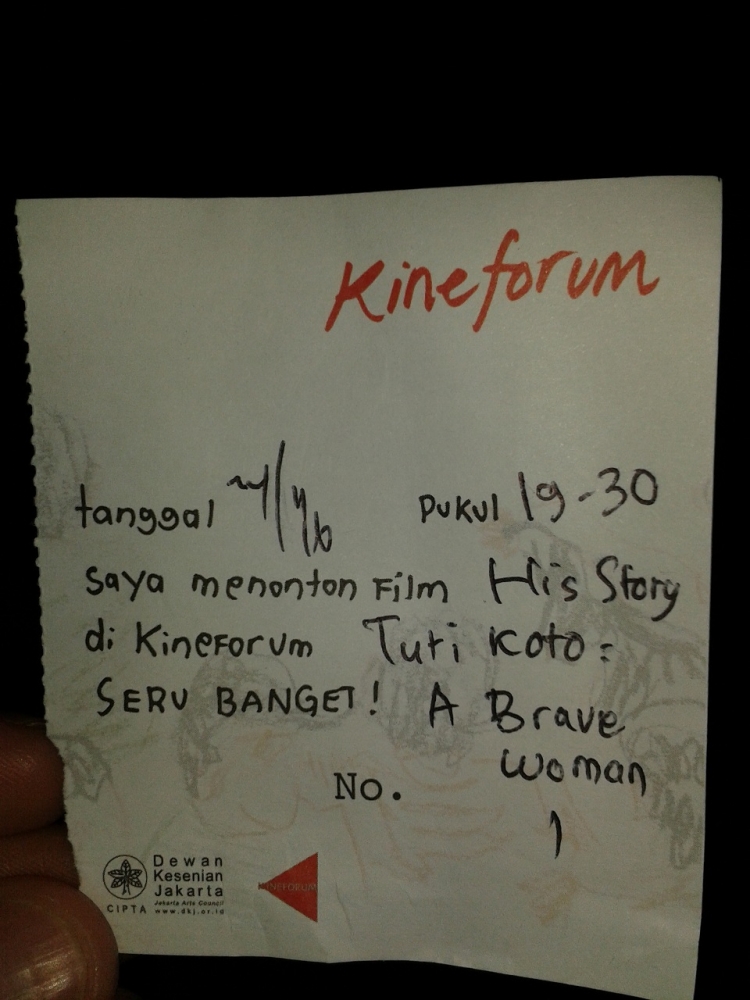 Kineforum
tanggal pukul 19-30
saya menonton Film His Story
di Kineforum Tuti Koto:
SERU BANGET! A Brave
Woman
No. 1
Dewan
Kesenian
Jakarta
Jakarta Arts Council
CIPTA www.dkj.or.id
KINEFORUM